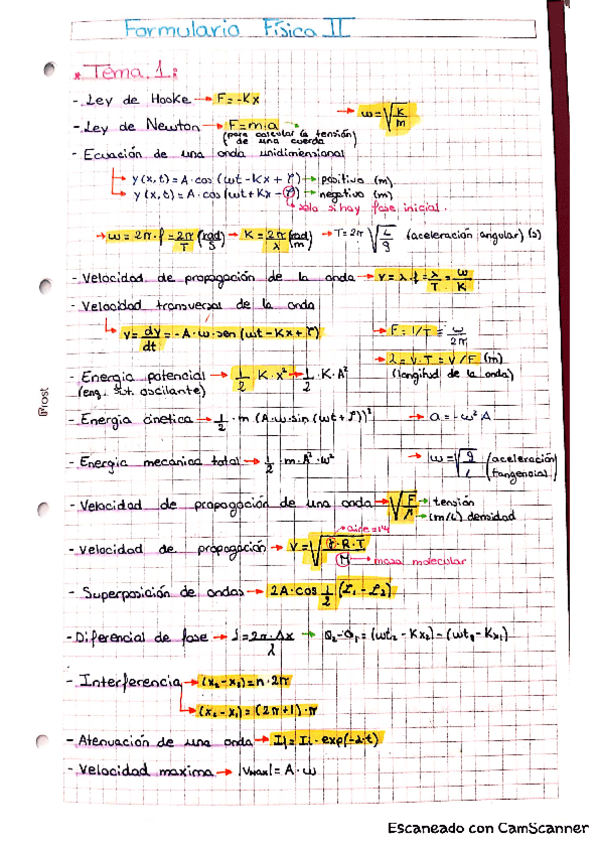 Formulario Física II
* Tema 1:
- Ley de Hooke → F=-Kx
→ ω=√K/m
- Ley de Newton → F=m·a →
(para calcular la tensión de una cuerda)
- Ecuación de una onda unidimensional
→ y(x,t)=A·cos (ωt-Kx+φ) → positivo (m)
→ y(x,t)=A·cos(ωt+Kx-φ) → negativo (m)
solo si hay fase inicial.
→ ω=2π·f=2π/T (rad/s) → K=2π/λ (rad/m) → T=2π√L/g (aceleración angular) (s)
- Velocidad de propagación de la onda → v=λ·f=λ/T=ω/K
- Velocidad transversal de la onda
→ v=dy/dt=-A·ω·sen(ωt-Kx+φ)
→ F=1/T=ω/2π
→ λ=v·T=v/F (m)
(longitud de la onda)
- Energía potencial → 1/2 K·x² → 1/2·K·A²
(eng. sist. oscilante)
- Energía cinética → 1/2·m (A·ω·sin(ωt+φ))²
→ a=-ω²A
- Energía mecánica total → 1/2·m·A²·ω²
→ ω=√g/L (aceleración tangencial)
- Velocidad de propagación de una onda → √F → tensión
→ (m/L) densidad
aire=1'4
- Velocidad de propagación → v=√γ·R·T/M
→ masa molecular
- Superposición de ondas → 2A·cos 1/2 (φ1-φ2)
- Diferencial de fase → δ=2π·Δx/λ → θ2-θ1=(ωt2-Kx2)-(ωt1-Kx1)
- Interferencia → (x2-x1)=n·2π
→ (x2-x1)=(2n+1)·π
- Atenuación de una onda → If=Ii·exp(-2·t)
- Velocidad máxima → |vmax|=A·ω
Prost
Escaneado con CamScanner